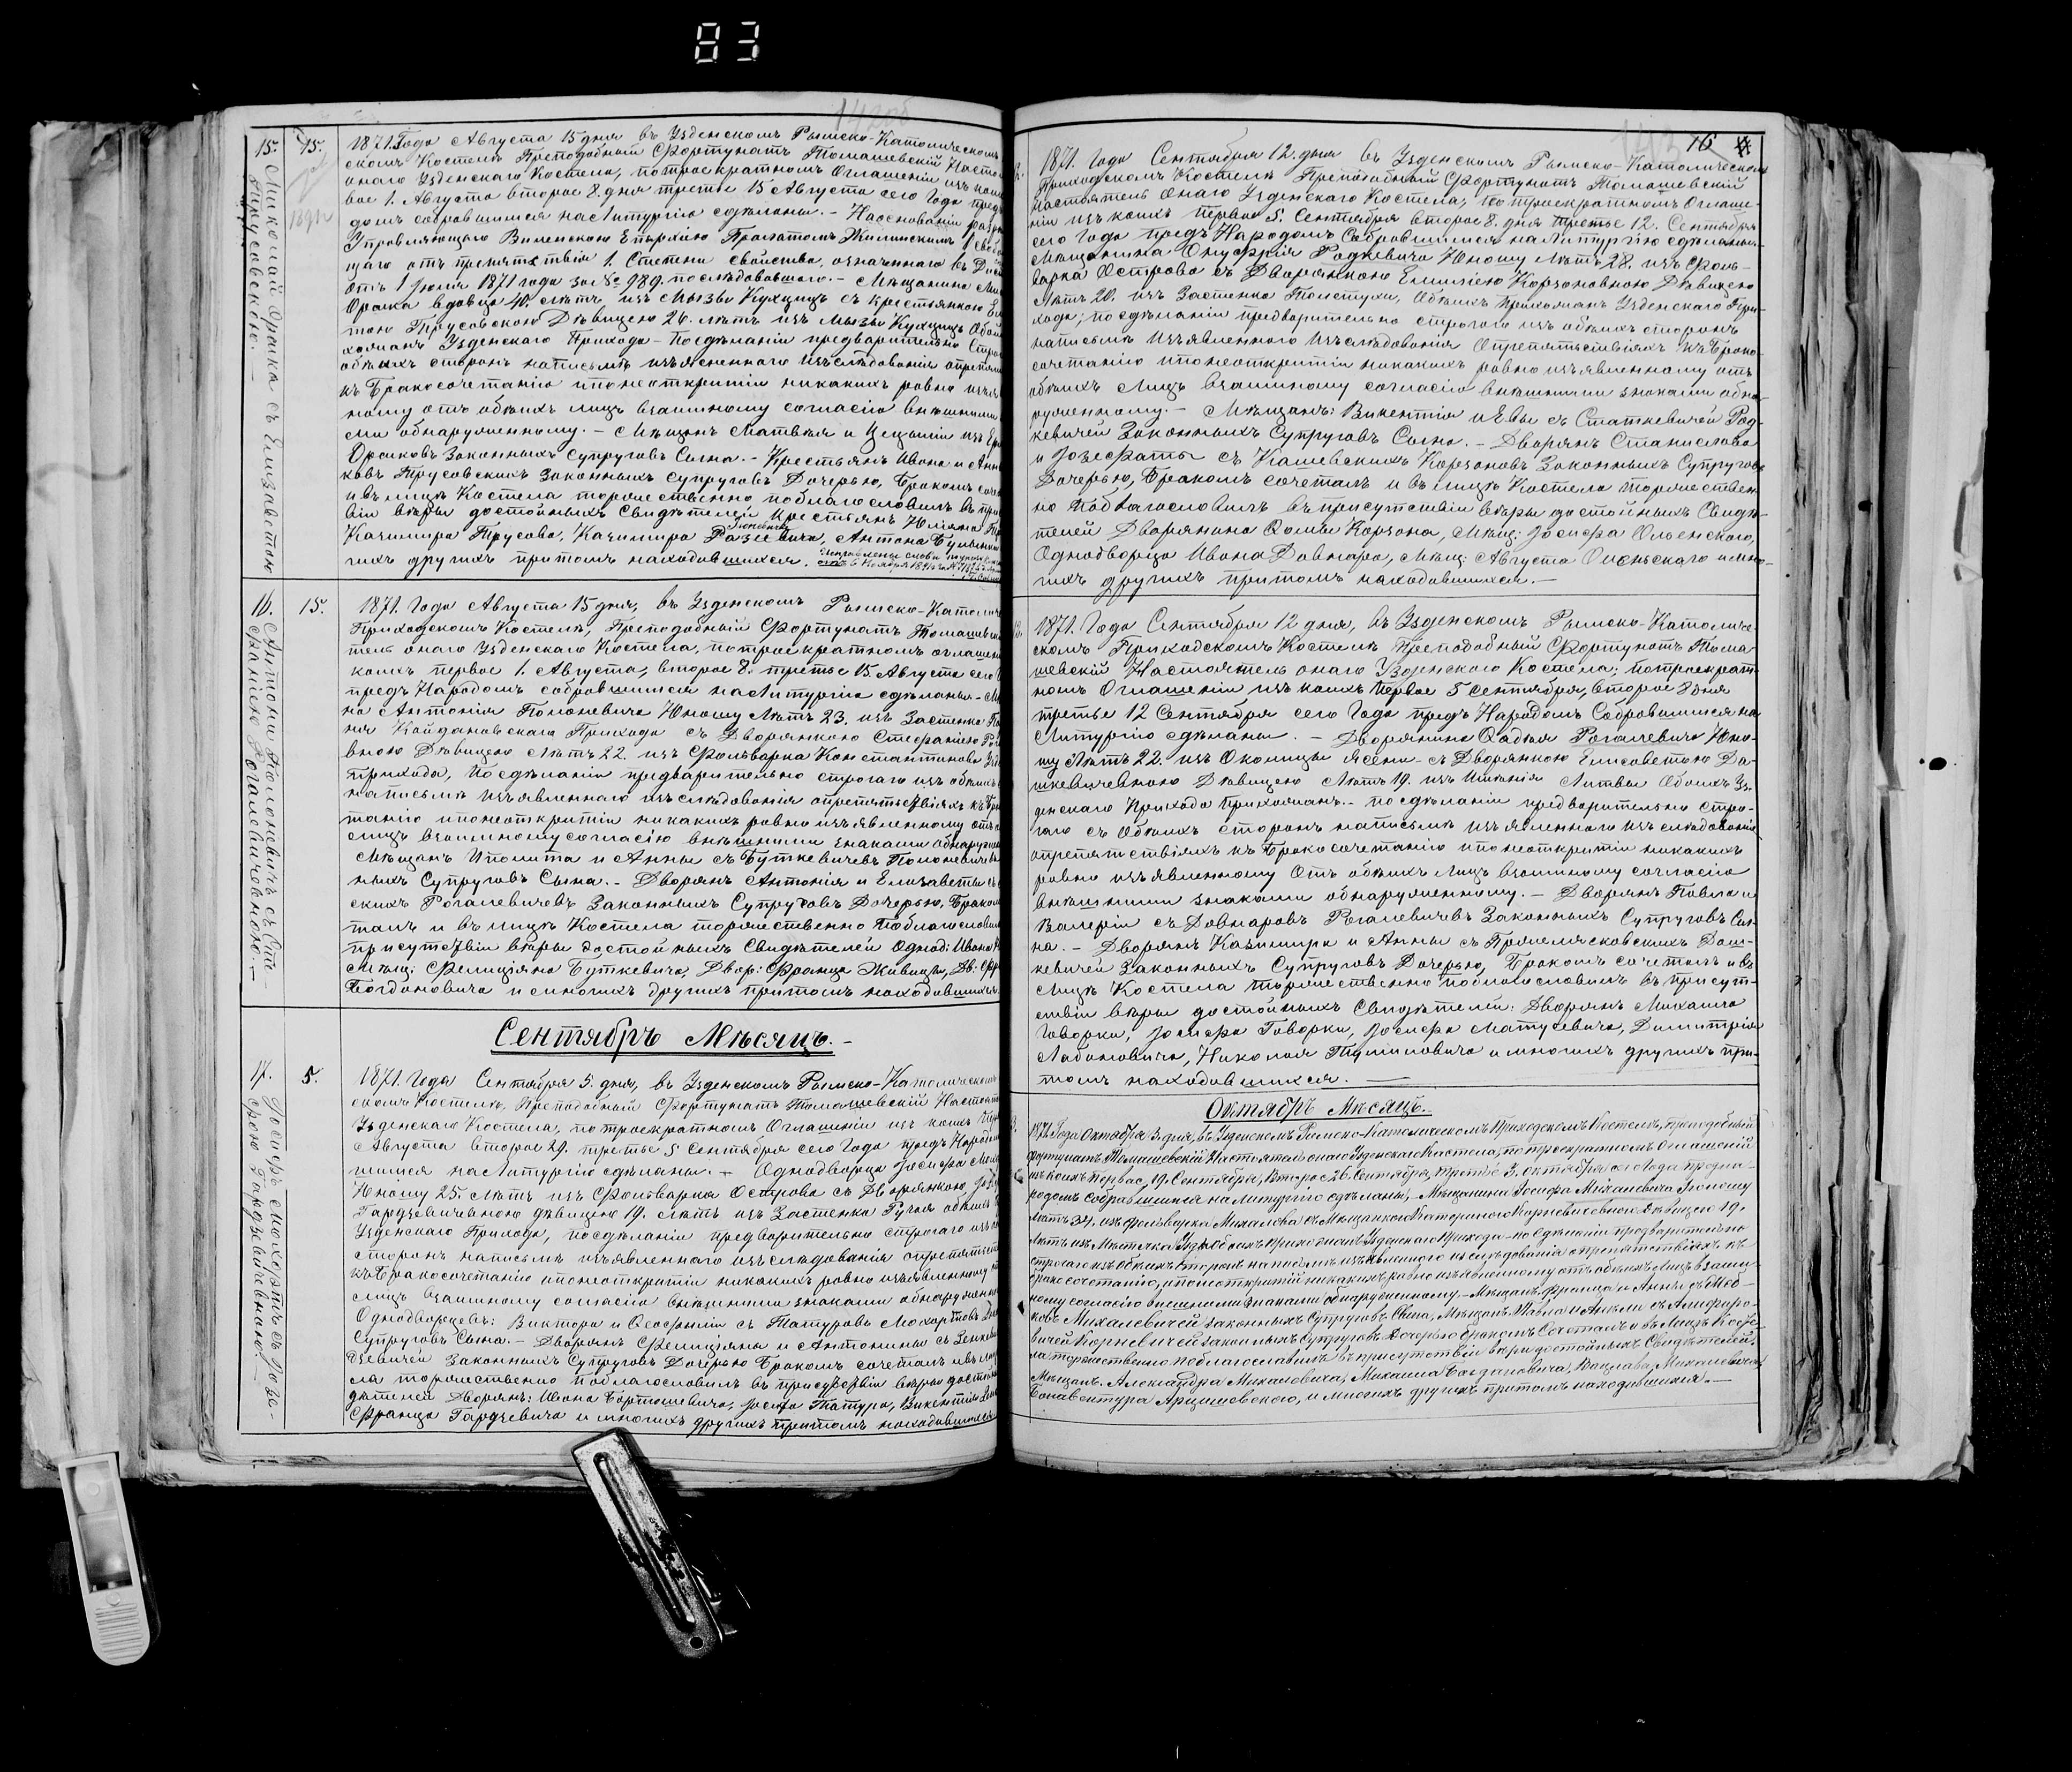 83
16
15.
15.
Миколай Орачка съ Елизаветою
Трусовскою. —
1871. Года Августа 15 дня въ Узденскомъ Римско-Католическомъ
скомъ Костелѣ Преподобный Фортунатъ Томашевскій Насто
онаго Узденскаго Костела, потроекратномъ Оглашеніи изъ коихъ
вое 1. Августа второе 8. дня третье 15 Августа сего Года предъ
домъ собравшимся на Литургію сдѣланы. — На основаніи разрѣ
Управляющаго Виленскою Епархіею Прелатомъ Жилинскимъ
щаго отъ препятствія 1. Степени свойства, означеннаго въ
отъ 1 Іюля 1871 года за № 989. послѣдовавшаго. — Мѣщанина Ми
вдовца 40. лѣтъ, изъ Мызы Кухцицъ съ Крестьянкою Е
тою Трусовскою Дѣвицею 26. лѣтъ изъ Мызы Кухцицъ Обои
хожанъ Узденскаго Прихода — Посдѣланіи предварительно Стро
обѣихъ сторонъ написьмѣ изъявленнаго изъслѣдованія опрепят
къ Бракосочетанію ипонеоткрытіи никакихъ равно изъяв
ному отъ обѣихъ лицъ взаимному согласію внѣшними
ми обнаруженному. — Мѣщанъ Матвѣя и Цециліи изъ
Законныхъ Супруговъ Сына. — Крестьянъ Ивана и Анн
ковъ Трусовскихъ Законныхъ Супруговъ Дочерью, Бракомъ соче
и въ лицѣ Костела торжественно поблагословилъ въ при
віи вѣры достойныхъ Свидѣтелей Крестьянъ Юліана
Казимира Трусова, Казимира Антона
гихъ другихъ притомъ находовшихся.
16.
15.
Антоній Полоневичъ съ Сте-
фаніею Рогалевичевною. —
1871. Года Августа 15 дня, въ Узденскомъ Римско-Католич
Приходскомъ Костелѣ, Преподобный Фортунатъ Томашевск
тель онаго Узденскаго Костела, потроекратномъ оглашен
коихъ первое 1. Августа, второе 8. третье 15. Августа сего
предъ Народомъ собравшимся на Литургію сдѣланы. — М
на Антонія Полоневича Юношу Лѣтъ 23. изъ Застенка
ня Койдановскаго Прихода съ Дворянкою Стефаніею Ро
вною Дѣвицею Лѣтъ 22. изъ Фольварка Константинова
Прихода, Посдѣланіи предварительно строгаго изъ обѣихъ
написьмѣ изъявленнаго изъслѣдованія опрепятствіяхъ къ Бра
танію ипонеоткрытіи никакихъ равно изъявленному отъ
лицъ взаимному согласію внѣшними знаками обнаруже
Мѣщанъ Иполита и Анны съ Буткевичевъ Полоневичев
ныхъ Супруговъ Сына. — Дворянъ Антонія и Елизаветы съ
скихъ Рогалевичовъ Законныхъ Супруговъ Дочерью, Браком
талъ и въ лицѣ Костела торжественно Поблагословилъ
присутствіи вѣры достойныхъ Свидѣтелей Однод: Ивана
Мѣщ: Фелиціяна Буткевича, Двор: Франца Живицы, Дв: Фр
Богдановича и многихъ другихъ притомъ находовшихся.
Сентябрь Мѣсяцъ. —
17.
5.
Іосифъ Мохортъ съ Іозе-
фою Гардзевичевною. —
1871. Года Сентября 5. дня, въ Узденскомъ Римско-Католическомъ
скомъ Костелѣ, Преподобный Фортунатъ Томашевскій Настоят
Узденскаго Костела, потроекратномъ Оглашеніи изъ коихъ Пер
Августа второе 29. третье 5 Сентября сего Года предъ Народом
шимся на Литургію сдѣланы. — Однодворца Іосифа Мох
Юношу 25. Лѣтъ изъ Фольварка Острова съ Дворянкою Іоз
Гардзевичевною дѣвицею 19. лѣтъ изъ Застенка обѣихъ
Узденскаго Прихода, посдѣланіи предварительно строгаго изъ
сторонъ написьмѣ изъявленнаго изъслѣдованія опрепятств
къ Бракосочетанію ипонеоткрытіи никакихъ равно изъявленному
лицъ взаимному согласію внѣшними знаками обнаруженно
Однодворцевъ: Виктора и Ѳеофиліи съ Татуровъ Мохортовъ
Супруговъ Сына. — Дворянъ Фелиціяна и Антонины съ
дзевичей Законныхъ Супруговъ Дочерью Бракомъ сочеталъ и въ ли
ла торжественно поблагословилъ въ присутствіи вѣры достой
дѣтелей Дворянъ: Ивана Бартошевича, Татура, Викентія
Франца Гардзевича и многихъ другихъ притомъ находовшихся
1871. Года Сентября 12. дня въ Узденскомъ Римско-Католическом
Приходскомъ Костелѣ Преподобный Фортунатъ Томашевскій
Настоятель онаго Узденскаго Костела, по троекратномъ Оглаше-
ніи изъ коихъ первое 5. Сентября второе 8. дня третье 12. Сентября
сего Года предъ Народомъ Собравшимся на Литургію сдѣланы. —
Мѣщанина Онуфрія Родкевича Юношу Лѣтъ 28. изъ Фоль-
варка Острова съ Дворянкою Емиліею Корзоновною Дѣвицею
Лѣтъ 20. изъ Застенка Толстухи, Обѣихъ Прихожанъ Узденскаго При-
хода; посдѣланіи предварительно строгаго изъ обѣихъ сторонъ
написьмѣ Изъявленного Изъслѣдованія Опрепятствіяхъ къ Брако-
сочетанію ипонеоткрытіи никакихъ равно изъявленному отъ
обѣихъ Лицъ взаимному согласію внѣшними знаками обна-
руженному. — Мѣщанъ: Викентія и Евы съ Статкевичей Род-
кевичей Законныхъ Супруговъ Сына. — Дворянъ Станислава
и Іозефаты съ Кашевскихъ Корзоновъ Законныхъ Супруговъ
Дочерью, Бракомъ сочеталъ и въ лицѣ Костела торжествен
но Поблагословилъ въ присутствіи вѣры достойныхъ Свидѣ-
телей Дворянина Ѳомы Корзона, Мѣщ: Іосифа
Однодворца Ивана Довнара, Мѣщ: Августа и мно-
гихъ другихъ притомъ находовшихся. —
1871. Года Сентября 12 дня, въ Узденскомъ Римско-Католиче-
скомъ Приходскомъ Костелѣ Преподобный Фортунатъ Тома-
шевскій Настоятель онаго Узденского Костела; потроекрат-
номъ Оглашеніи изъ коихъ Первое 5 Сентября, второе 8 дня
третье 12 Сентября сего Года предъ Народомъ Собравшимся на
Литургію сдѣланы. — Дворянина Ѳадѣя Рогалевича Юно-
шу Лѣтъ 22. изъ Околицы Ясени — съ Дворянкою Елисаветою Да-
шкевичевною Дѣвицею Лѣтъ 19. изъ Имѣнія Литвы Обоихъ Уз-
денскаго Прихода Прихожанъ. — посдѣланіи предварительно стро-
гаго съ Обѣихъ сторонъ написьмѣ изъявленного изъслѣдованія
опрепятствіяхъ къ Бракосочетанію ипонеоткрытіи никакихъ
равно изъявленному Отъ обѣихъ Лицъ взаимному согласію
внѣшними знаками обнаруженному. — Дворянъ Павла и
Валеріи съ Довнаровъ Рогалевичевъ Законныхъ Супруговъ Сы-
на. — Дворянъ Казимира и Анны съ Даш-
кевичей Законныхъ Супруговъ Дочерью, Бракомъ сочеталъ и въ
Лицѣ Костела торжественно поблагословилъ въ присут-
ствіи вѣры достойныхъ Свидѣтелей: Дворянъ Михаила
Говорки, Іосифа Говорки, Іосифа Матусевича, Димитрія
Лабановича, Николая и многихъ другихъ при-
томъ находовшихся. —
Октябрь Мѣсяцъ.
1871. Года Октября 3. дня, въ Узденскомъ Римско-Католическомъ Приходскомъ Костелѣ, преподобный
Фортунатъ Томашевскій Настоятель онаго Узденскаго Костела, по троекратномъ Оглашеніи
изъ коихъ первое, 19. Сентября, Второе 26. Сентября, третіе 3. Октября сего Года предъ на-
родомъ собравшимся на литургію сдѣланы, — Мѣщанина Іосифа Михалевича Юношу
лѣтъ 34. изъ фольварка Михалова съ Мѣщанкою Катериною Корневичевною Дѣвицею 19.
Лѣтъ изъ Мѣстечка Узды обоихъ прихожанъ Узденскаго Прихода — по сдѣланіи предварительно
строгаго изъ обѣихъ сторонъ написьмѣ изъявленного изслѣдованія опрепятствіяхъ къ
бракосочетанію, ипонеоткрытій никакихъ, равно изъявленному отъ обѣихъ Лицъ взаим-
ному согласію внешними знаками обнаруженному. — Мѣщанъ Франца и Анны съ
ковъ Михалевичей законныхъ Супруговъ Сына, Мѣщанъ Павла и Анели съ
вичей Корневичей законныхъ Супруговъ Дочерью бракомъ Сочеталъ и въ Лицѣ Косте-
ла торжественно поблагословилъ въ присутствіи вѣры достойныхъ Свидѣтелей
Мѣщан. Александра Михаловича, Михаила Богдановича, Вацлава Михалевича
Бонавентура Арцишевского, и многихъ другихъ притомъ находившихся. —